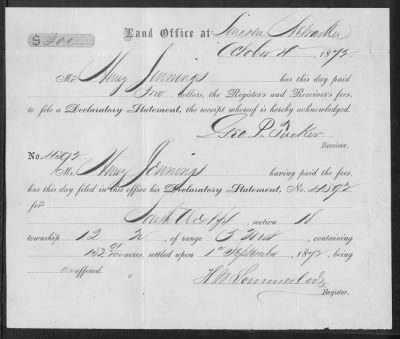 $ 2.00
Land Office at Lincoln Nebraska
October 11 1872.
Mr. Henry Jennings has this day paid
Two dollars, the Register's and Receiver's fees,
to file a Declaratory Statement, the receipt whereof is hereby acknowledged.
Geo. P. Tucker
Receiver.
No. 4892
Mr. Henry Jennings having paid the fees,
has this day filed in this office his Declaratory Statement, No. 4892
for
South West ¼, section 18
township 12 N of range 3 West, containing
acres, settled upon 1st September, 1872, being
offered.
Register.